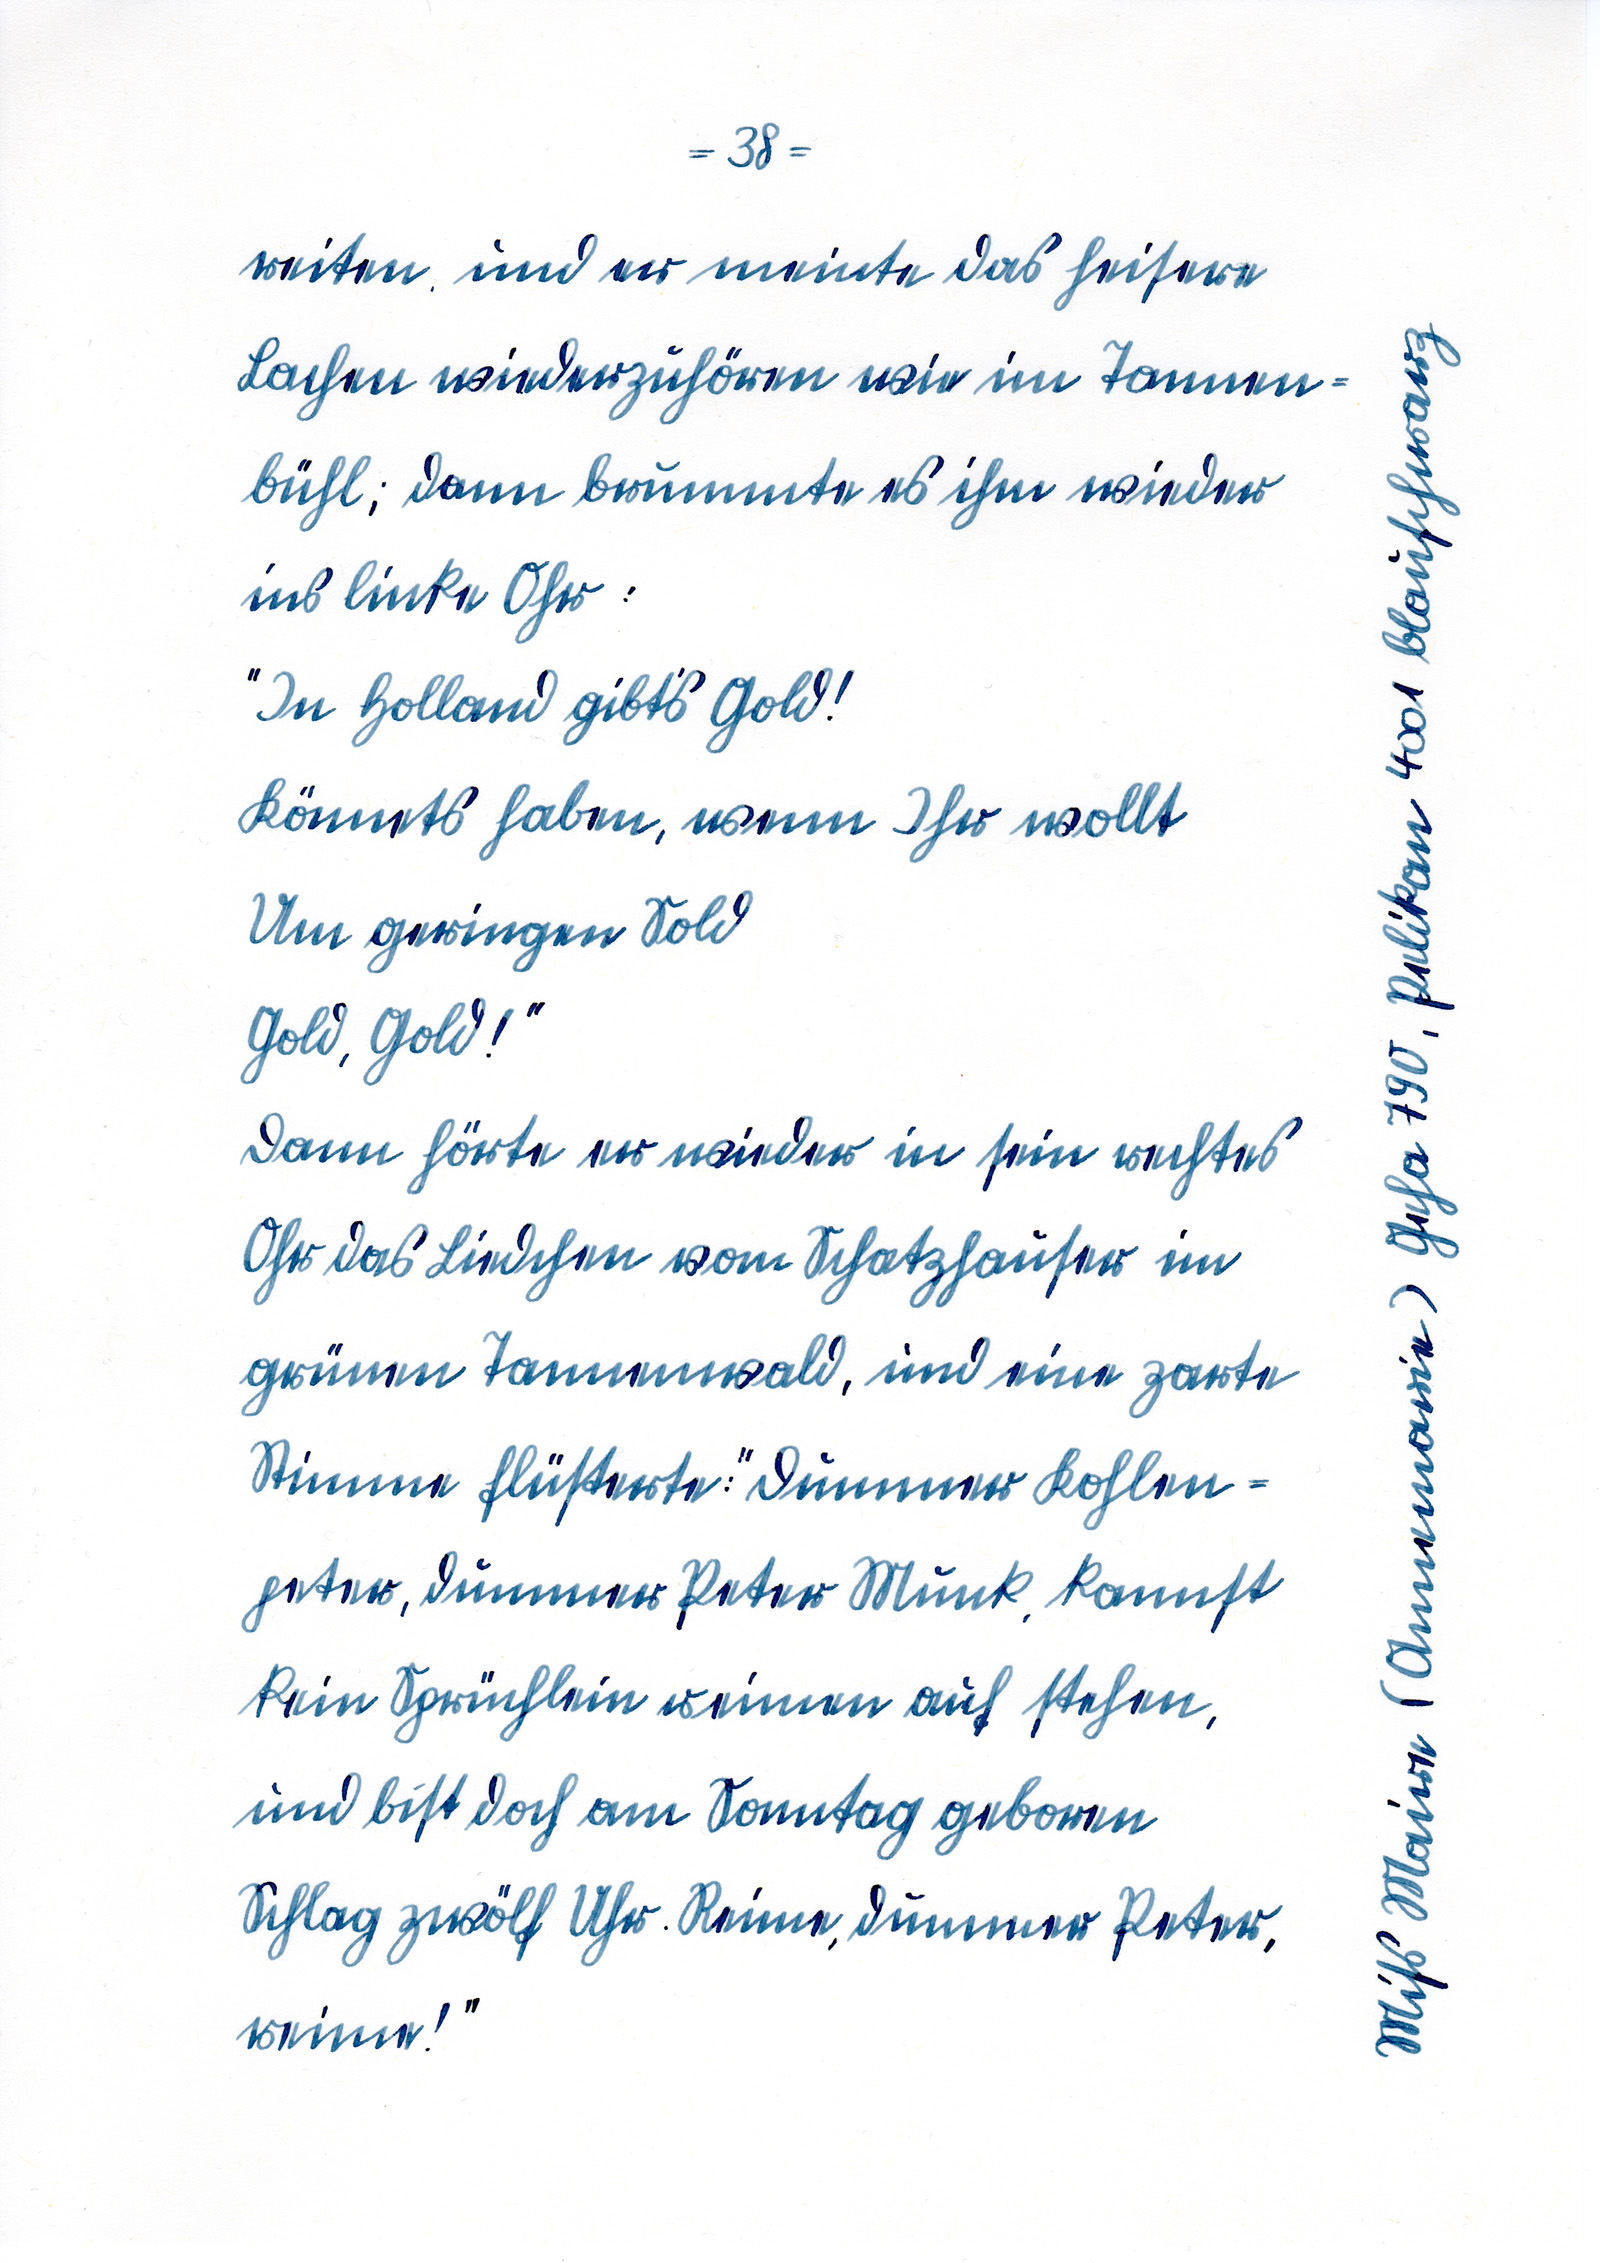 = 38 =
reiten, und er meinte das heisere
Lachen wiederzuhören wie im Tannen=
bühl; dann brummte es ihm wieder
ins linke Ohr:
"In Holland gibt's Gold!
Könnets haben, wenn Ihr wollt
Um geringen Sold
Gold, Gold!"
Dann hörte er wieder in sein rechtes
Ohr das Liedchen vom Schatzhauser im
grünen Tannenwald, und eine zarte
Stimme flüsterte: "Dummer Kohlen=
peter, dummer Peter Munk, kannst
kein Sprüchlein reimen auf stehen,
und bist doch am Sonntag geboren
Schlag zwölf Uhr. Reime, dummer Peter,
reime!"
Miss Mairu (Annemarie) Geha 790, Pelikan 4001 blauschwarz